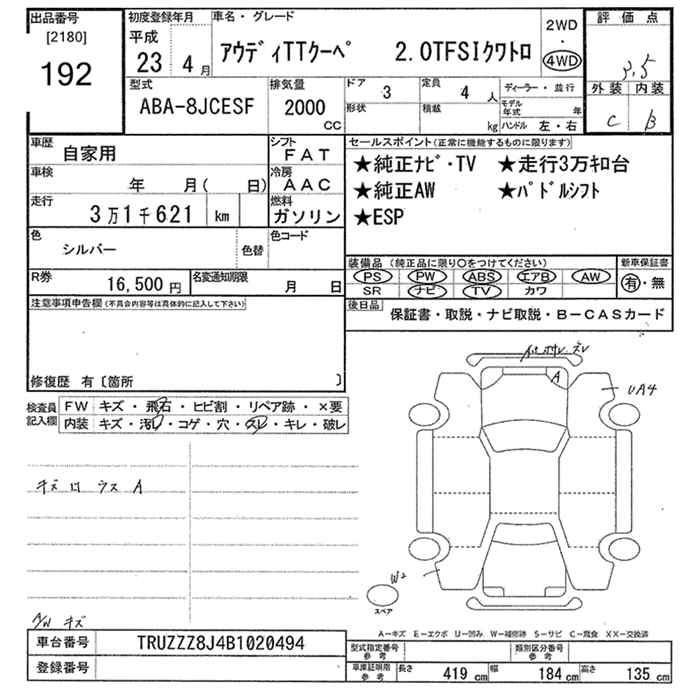 出品番号
[2180]
192
初度登録年月
平成
23 4月
車名・グレード
アウディTTクーペ 2.0TFSIクワトロ
2WD
4WD
評価点
3.5
外装 内装
C B
型式
ABA-8JCESF
排気量
2000
CC
ドア 3
定員 4 人
ディーラー・並行
形状
積載 kg
モデル年式 年
ハンドル 左・右
車歴
自家用
シフト
FAT
車検
年 月( 日)
冷房
AAC
走行
3万1千621 km
燃料
ガソリン
セールスポイント(正常に機能するものに限ります)
★純正ナビ・TV ★走行3万キロ台
★純正AW ★パドルシフト
★ESP
色
シルバー
色替
色コード
装備品 (純正品に限り○をつけてください)
新車保証書
PS PW ABS エアB AW
SR ナビ TV カワ
有・無
R券
16,500 円
名変通知期限
月 日
後日品
保証書・取説・ナビ取説・B-CASカード
注意事項申告欄(不具合内容等は具体的に記入して下さい)
修復歴 有〔箇所 〕
検査員記入欄
FW キズ・飛石・ヒビ割・リペア跡・×要
内装 キズ・汚れ・コゲ・穴・スレ・キレ・破レ
ズレ
A
UA4
キズ凹 ウス A
W2
スペア
A/W キズ
A-キズ E-エクボ U-凹み W-補修跡 S-サビ C-腐食 XX-交換済
車台番号
TRUZZZ8J4B1020494
型式指定番号
参考
類別区分番号
参考
登録番号
車庫証明用
参考
長さ 419 cm 幅 184 cm 高さ 135 cm